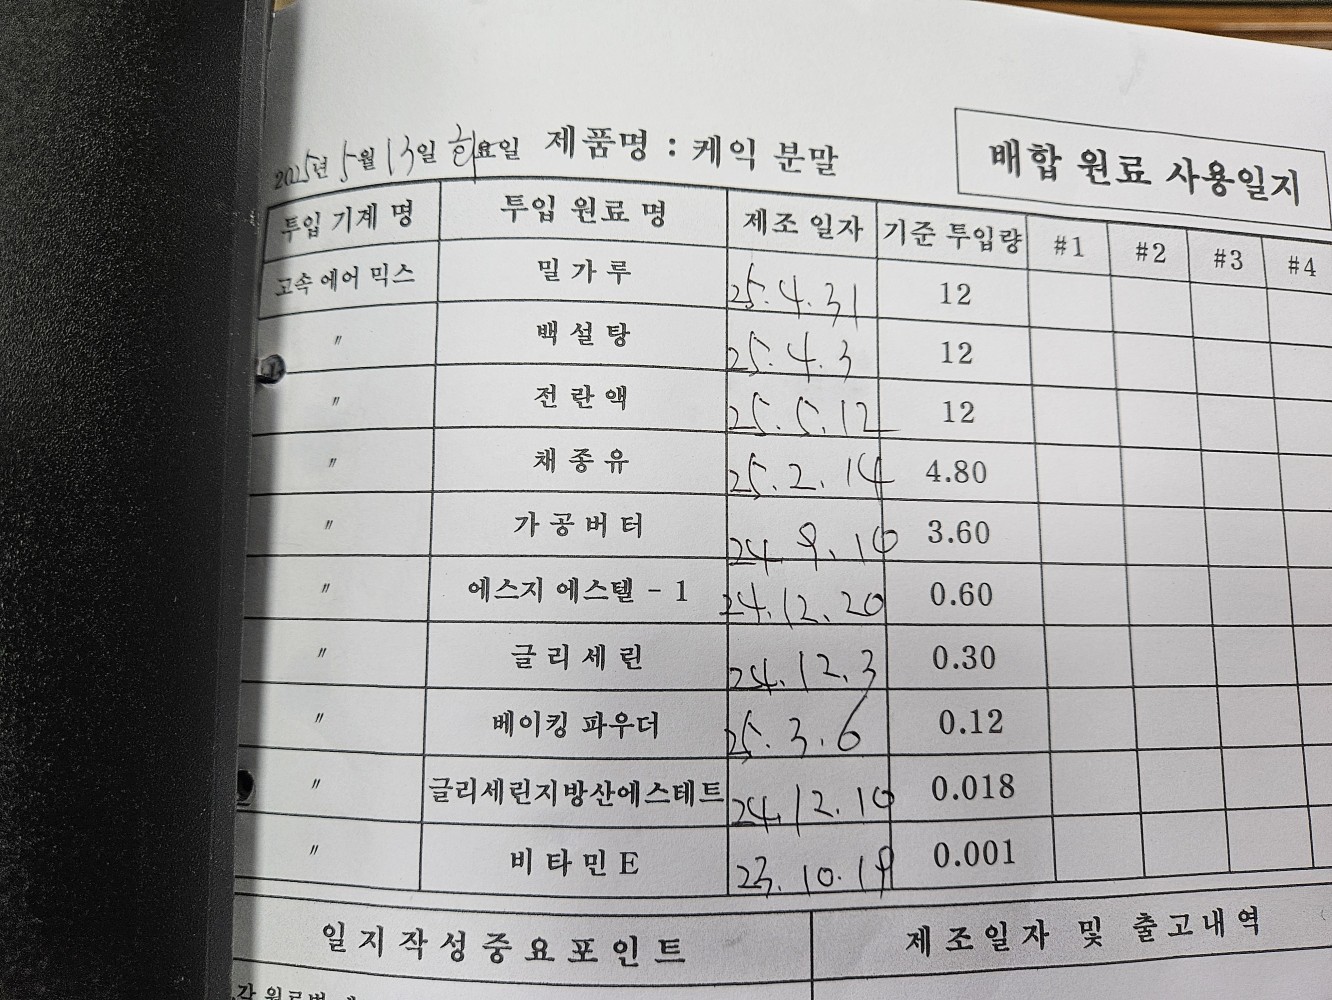 2025년 5월 13일 화요일 제품명 : 케익 분말
배합 원료 사용일지
투입 기계 명 투입 원료 명 제조 일자 기준 투입량 #1 #2 #3 #4
고속 에어 믹스 밀 가 루 25.4.31 12
〃 백 설 탕 25.4.3 12
〃 전 란 액 25.5.12 12
〃 채 종 유 25.2.14 4.80
〃 가 공 버 터 24.9.10 3.60
〃 에스지 에스텔 - 1 24.12.20 0.60
〃 글 리 세 린 24.12.3 0.30
〃 베이킹 파우더 25.3.6 0.12
〃 글리세린지방산에스테트 24.12.10 0.018
〃 비 타 민 E 23.10.19 0.001
일 지 작 성 중 요 포 인 트 제 조 일 자 및 출 고 내 역